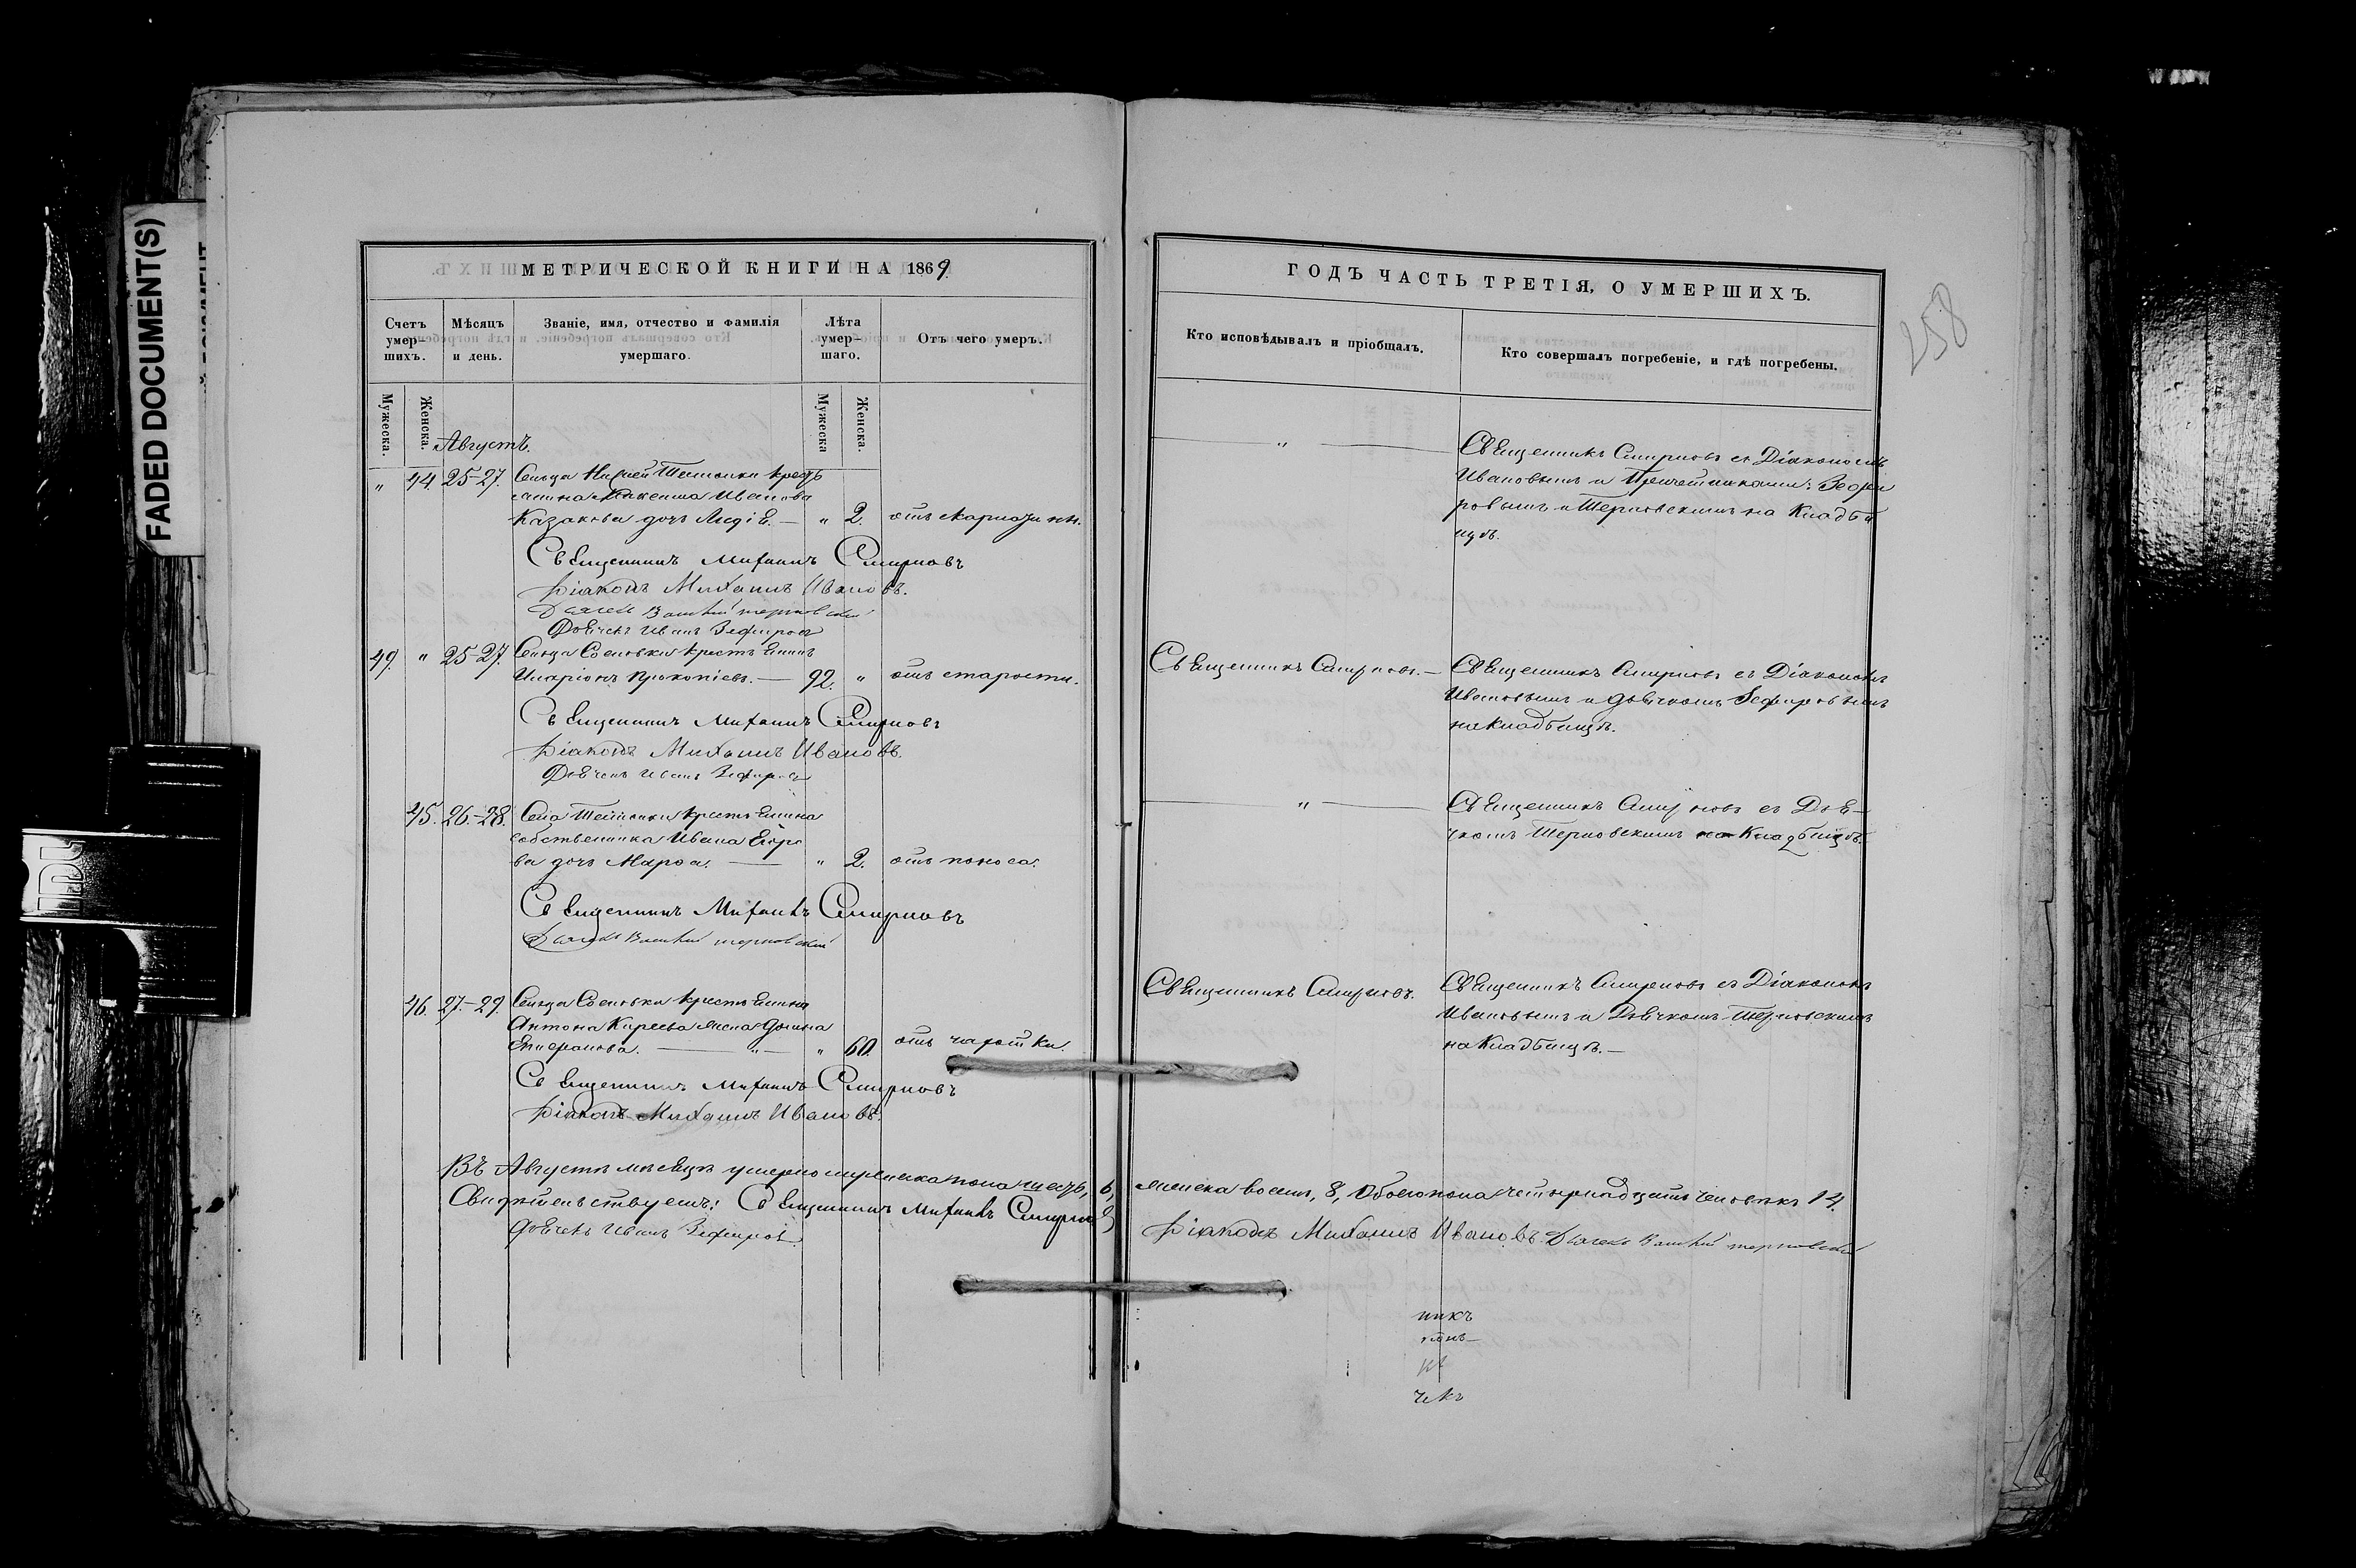 FADED DOCUMENT(S)
МЕТРИЧЕСКОЙ КНИГИ НА 1869.
Счетъ умер-шихъ.
Мѣсяцъ и день.
Званіе, имя, отчество и фамилія умершаго.
Лѣта умер-шаго.
Отъ чего умеръ.
Мужеска.
Женска.
Мужеска
Женска.
Августъ.
„ 44. 25-27. Сельца Тешилки крестъ
янина Иванова
Казакова дочь Лидія. — „ 2. отъ
Священникъ Михаилъ Смирновъ
Діаконъ Михаилъ Ивановъ.
Дьячекъ Василій Терновскій
Дьячекъ Иванъ Зефировъ
49. „ 25-27. Сельца Сосновки крестьянинъ
Иларіонъ Прокопіевъ. — 92. „ отъ старости.
Священникъ Михаилъ Смирновъ
Діаконъ Михаилъ Ивановъ.
Дьячекъ Иванъ Зефировъ
45. 26.-28. Села крестьянина
собственника Ивана Егоро
ва дочь Марѳа. — „ 2. отъ поноса.
Священникъ Михаилъ Смирновъ
Дьячекъ Василій Терновскій
46. 27.-29. Сельца Сосновки крестьянина
Антона Киреева жена Домна
— „ — „ 60. отъ чахотки.
Священникъ Михаилъ Смирновъ
Діаконъ Михаилъ Ивановъ.
Въ Августѣ мѣсяцѣ умерло мужеска пола шесть, 6,
Свидѣтельствуемъ: Священникъ Михаилъ Смирновъ
Дьячекъ Иванъ Зефировъ.
ГОДЪ ЧАСТЬ ТРЕТІЯ, О УМЕРШИХЪ.
258
Кто исповѣдывалъ и пріобщалъ.
Кто совершалъ погребеніе, и гдѣ погребены.
— „ — Священникъ Смирновъ съ Діакономъ
Ивановымъ и Причетниками: Зефи
ровымъ и Терновскимъ на Кладби
щѣ.
Священникъ Смирновъ. — Священникъ Смирновъ съ Діакономъ
Ивановымъ и дьячкомъ Зефировымъ
на Кладбищѣ.
— „ — Священникъ Смирновъ съ Дья-
чкомъ Терновскимъ на Кладбищѣ.
Священникъ Смирновъ. Священникъ Смирновъ съ Діакономъ
Ивановымъ и Дьячкомъ Терновскимъ
на Кладбищѣ. —
женска восемь, 8, Обоего пола четырнадцать человѣкъ 14.
Діаконъ Михаилъ Ивановъ. Дьячекъ Василій Терновскій
никъ
чекъ